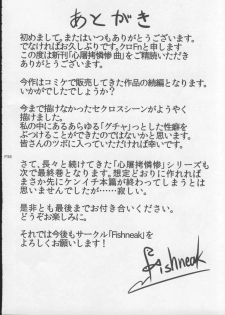 あとがき
初めまして。またはいつもありがとうございます。
でなければお久しぶりです。クロFnと申します
この度は新刊「心屠拷憐惨曲」をご精読いただき
ありがとうございます。
今作はコミケで販売してきた作品の続編となります。
いかがでしたでしょうか?
今まで描けなかったセクロスシーンがようやく
描けました。
私の中にあるあらゆる「グチャ」とした性癖を
ぶつけることができたのではないかと思います。
皆さんのツボに入っていただければ幸いです。
さて、長々と続けてきた「心屠拷憐惨」シリーズも
次で最終巻となります。想定どおりに作れれば
まさか先にケンイチ本篇が終わってしまうとは
思いませんでしたが……寂しい。
是非とも最後までお付き合いください。
どうぞお楽しみに。
それでは今後もサークル「Fishneak」を
よろしくお願いします!
Fishneak